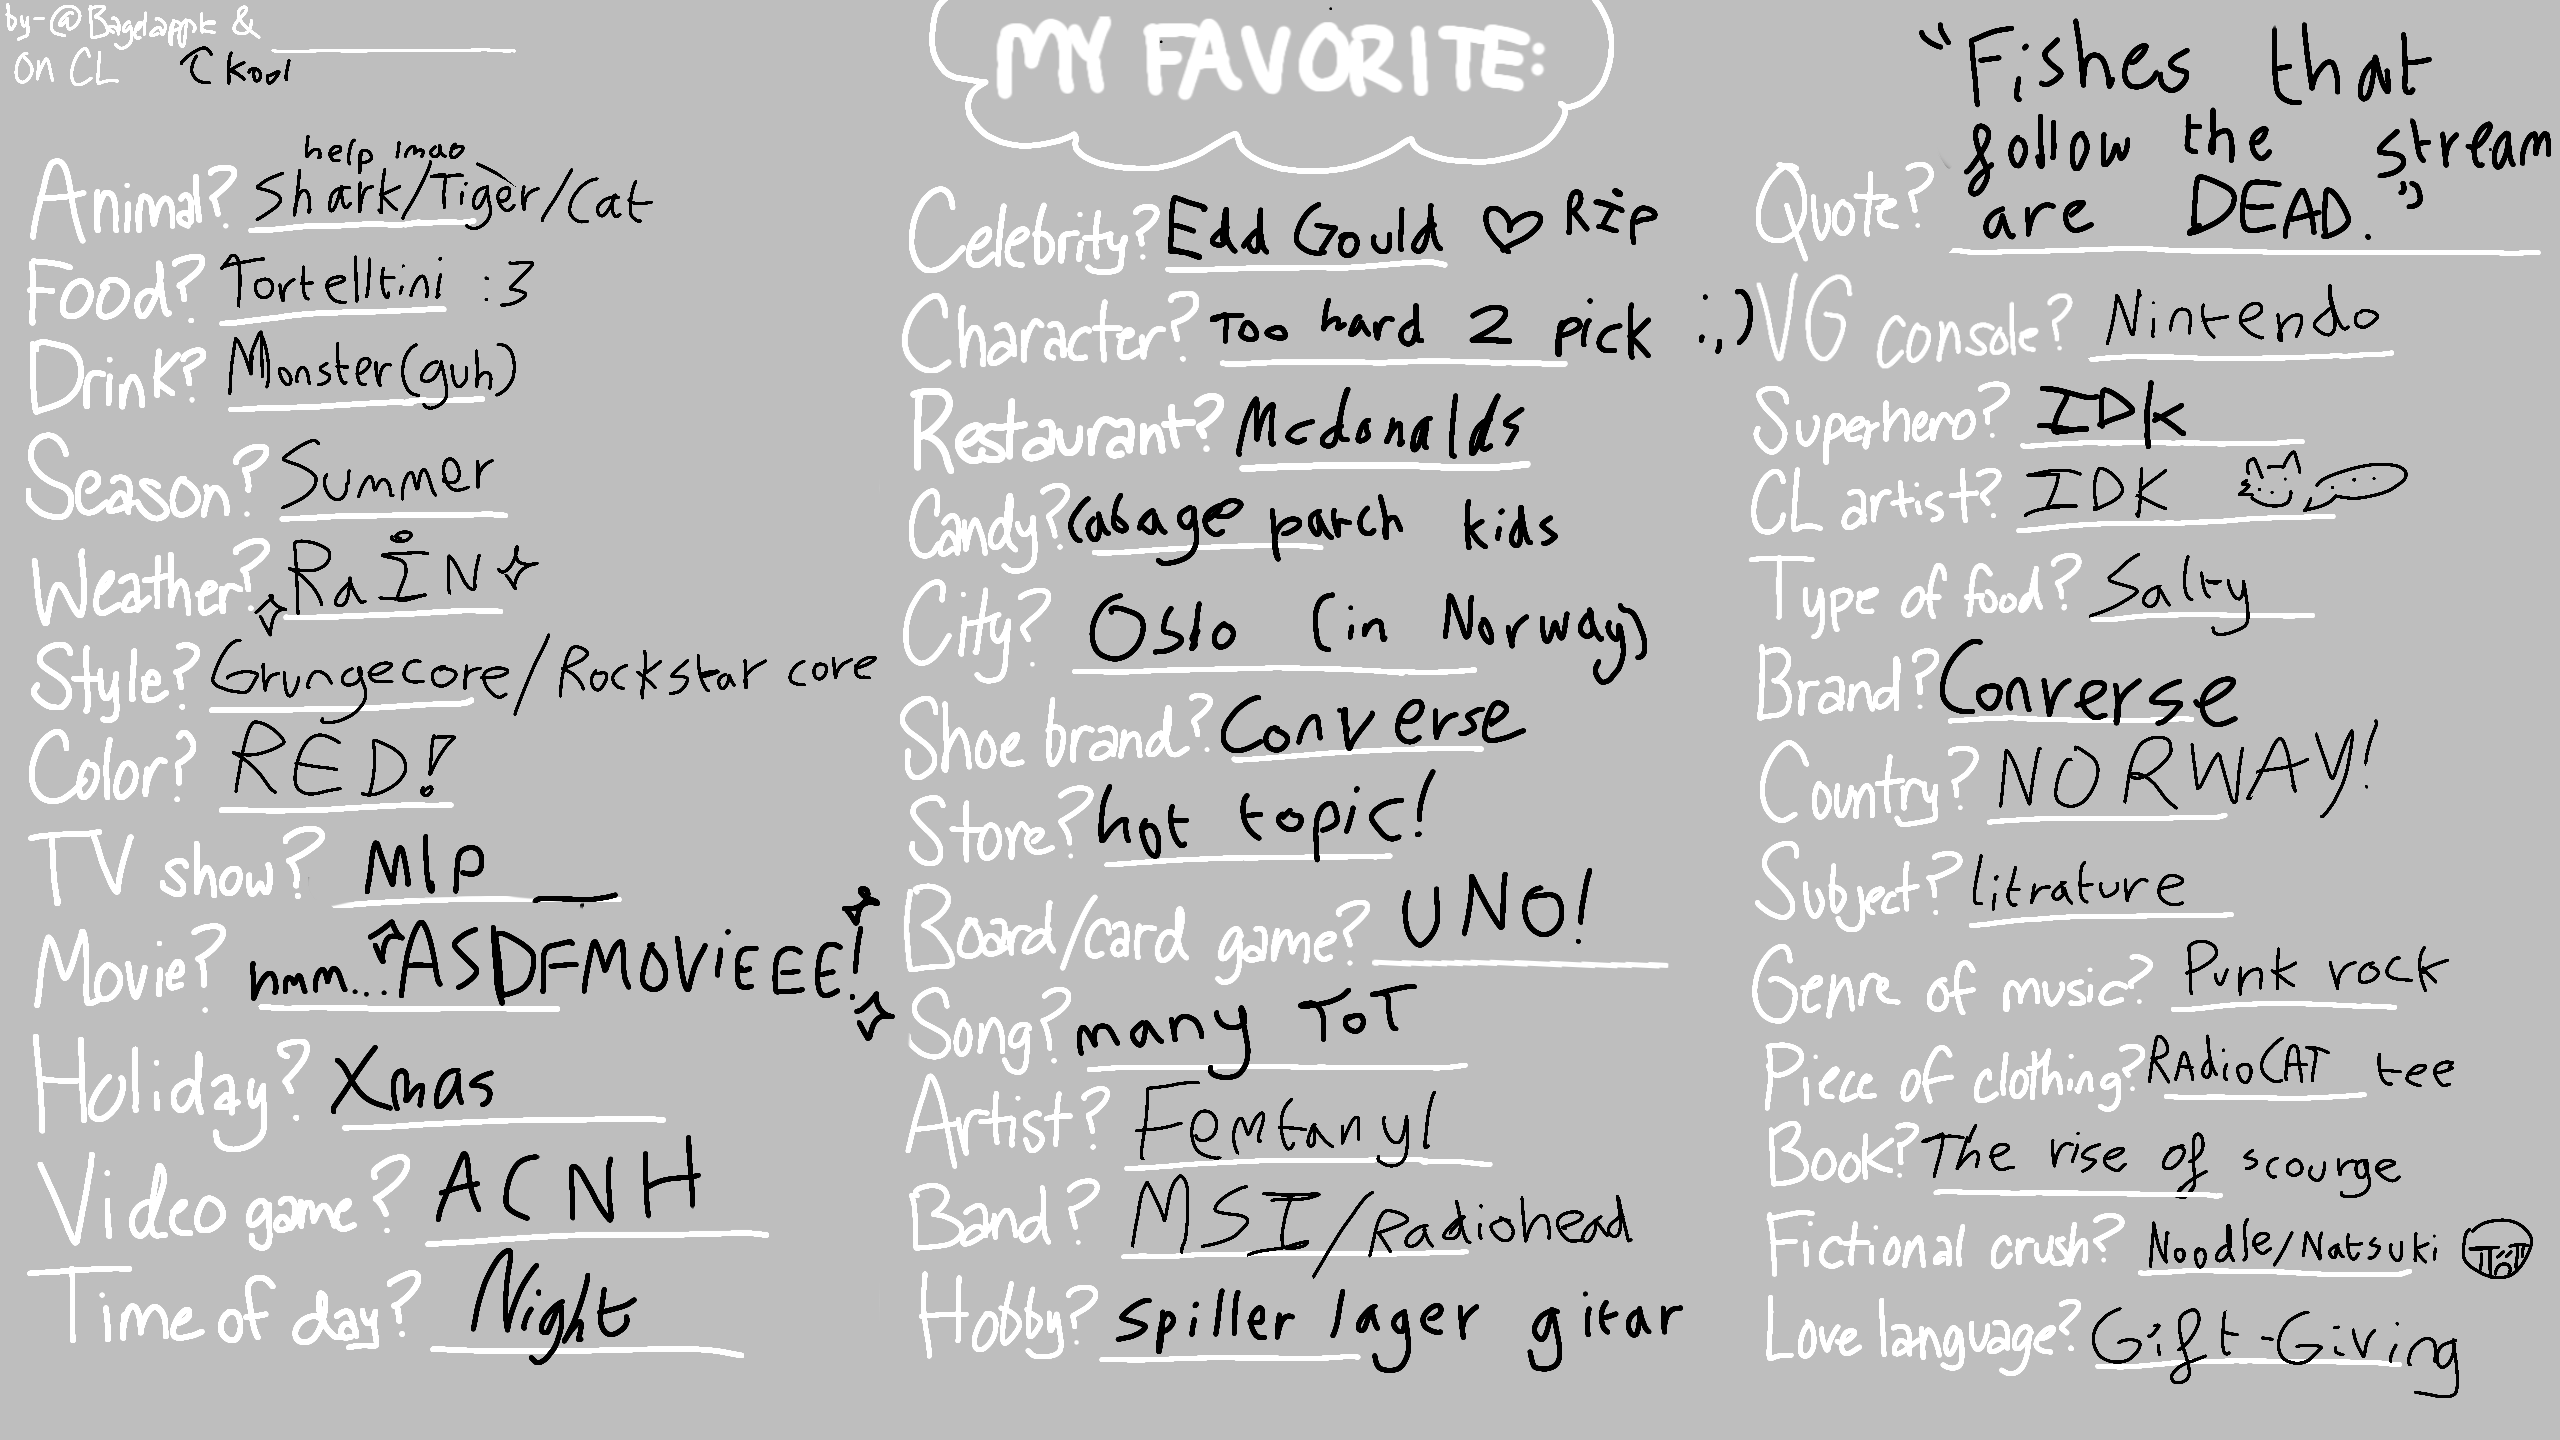 by-@Bagelappk &
on CL
Kool
MY FAVORITE:
help lmao
Animal? Shark/Tiger/Cat
Food? Tortelltini :3
Drink? Monster(guh)
Season? Summer
Weather? RaiN
Style? Grungecore/Rockstar core
Color? RED!
TV show? Mlp
Movie? hmm... ASDFMOVIEEE!
Holiday? Xmas
Video game? ACNH
Time of day? Night
Celebrity? Edd Gould ♡ RIP
Character? Too hard 2 pick :,)
Restaurant? Mcdonalds
Candy? Cabage parch kids
City? Oslo (in Norway)
Shoe brand? Converse
Store? hot topic!
Board/card game? UNO!
Song? many ToT
Artist? Femtanyl
Band? MSI/Radiohead
Hobby? spiller lager gitar
"Fishes that
follow the stream
Quote? are DEAD."
VG console? Nintendo
Superhero? IDK
CL artist? IDK
Type of food? Salty
Brand? Converse
Country? NORWAY!
Subject? litrature
Genre of music? Punk rock
Piece of clothing? RAdioCAT tee
Book? The rise of scourge
Fictional crush? Noodle/Natsuki
Love language? Gift-Giving